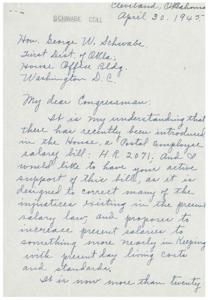 Cleveland, Oklahoma
April 30. 1945
SCHWABE COLL
Hon. George W. Schwabe
First Dist. of Okla.
House Office Bldg
Washington D.C.
My dear Congressman:
It is my understanding that
there has recently been introduced
in the House, a Postal Employee
salary bill: H R 2071. And I
would like to have your active
support of this bill, as it is
designed to correct many of the
injustices existing in the present
salary law, and proposes to
increase present salaries to
something more nearly in keeping
with present day living costs
and standards.
It is now more than twenty